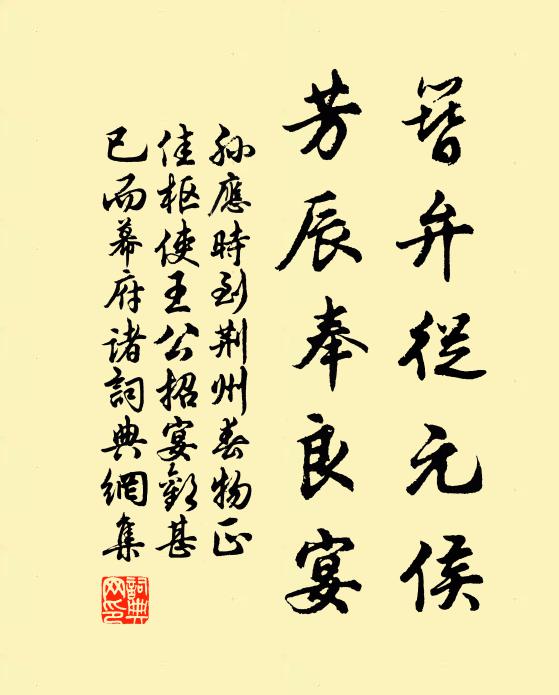 簪弁從元侯
芳辰奉良宴
孫應時到荆州春物正
佳枢使王公招宴歡甚
已而幕府諸詞典網集
詞典網印